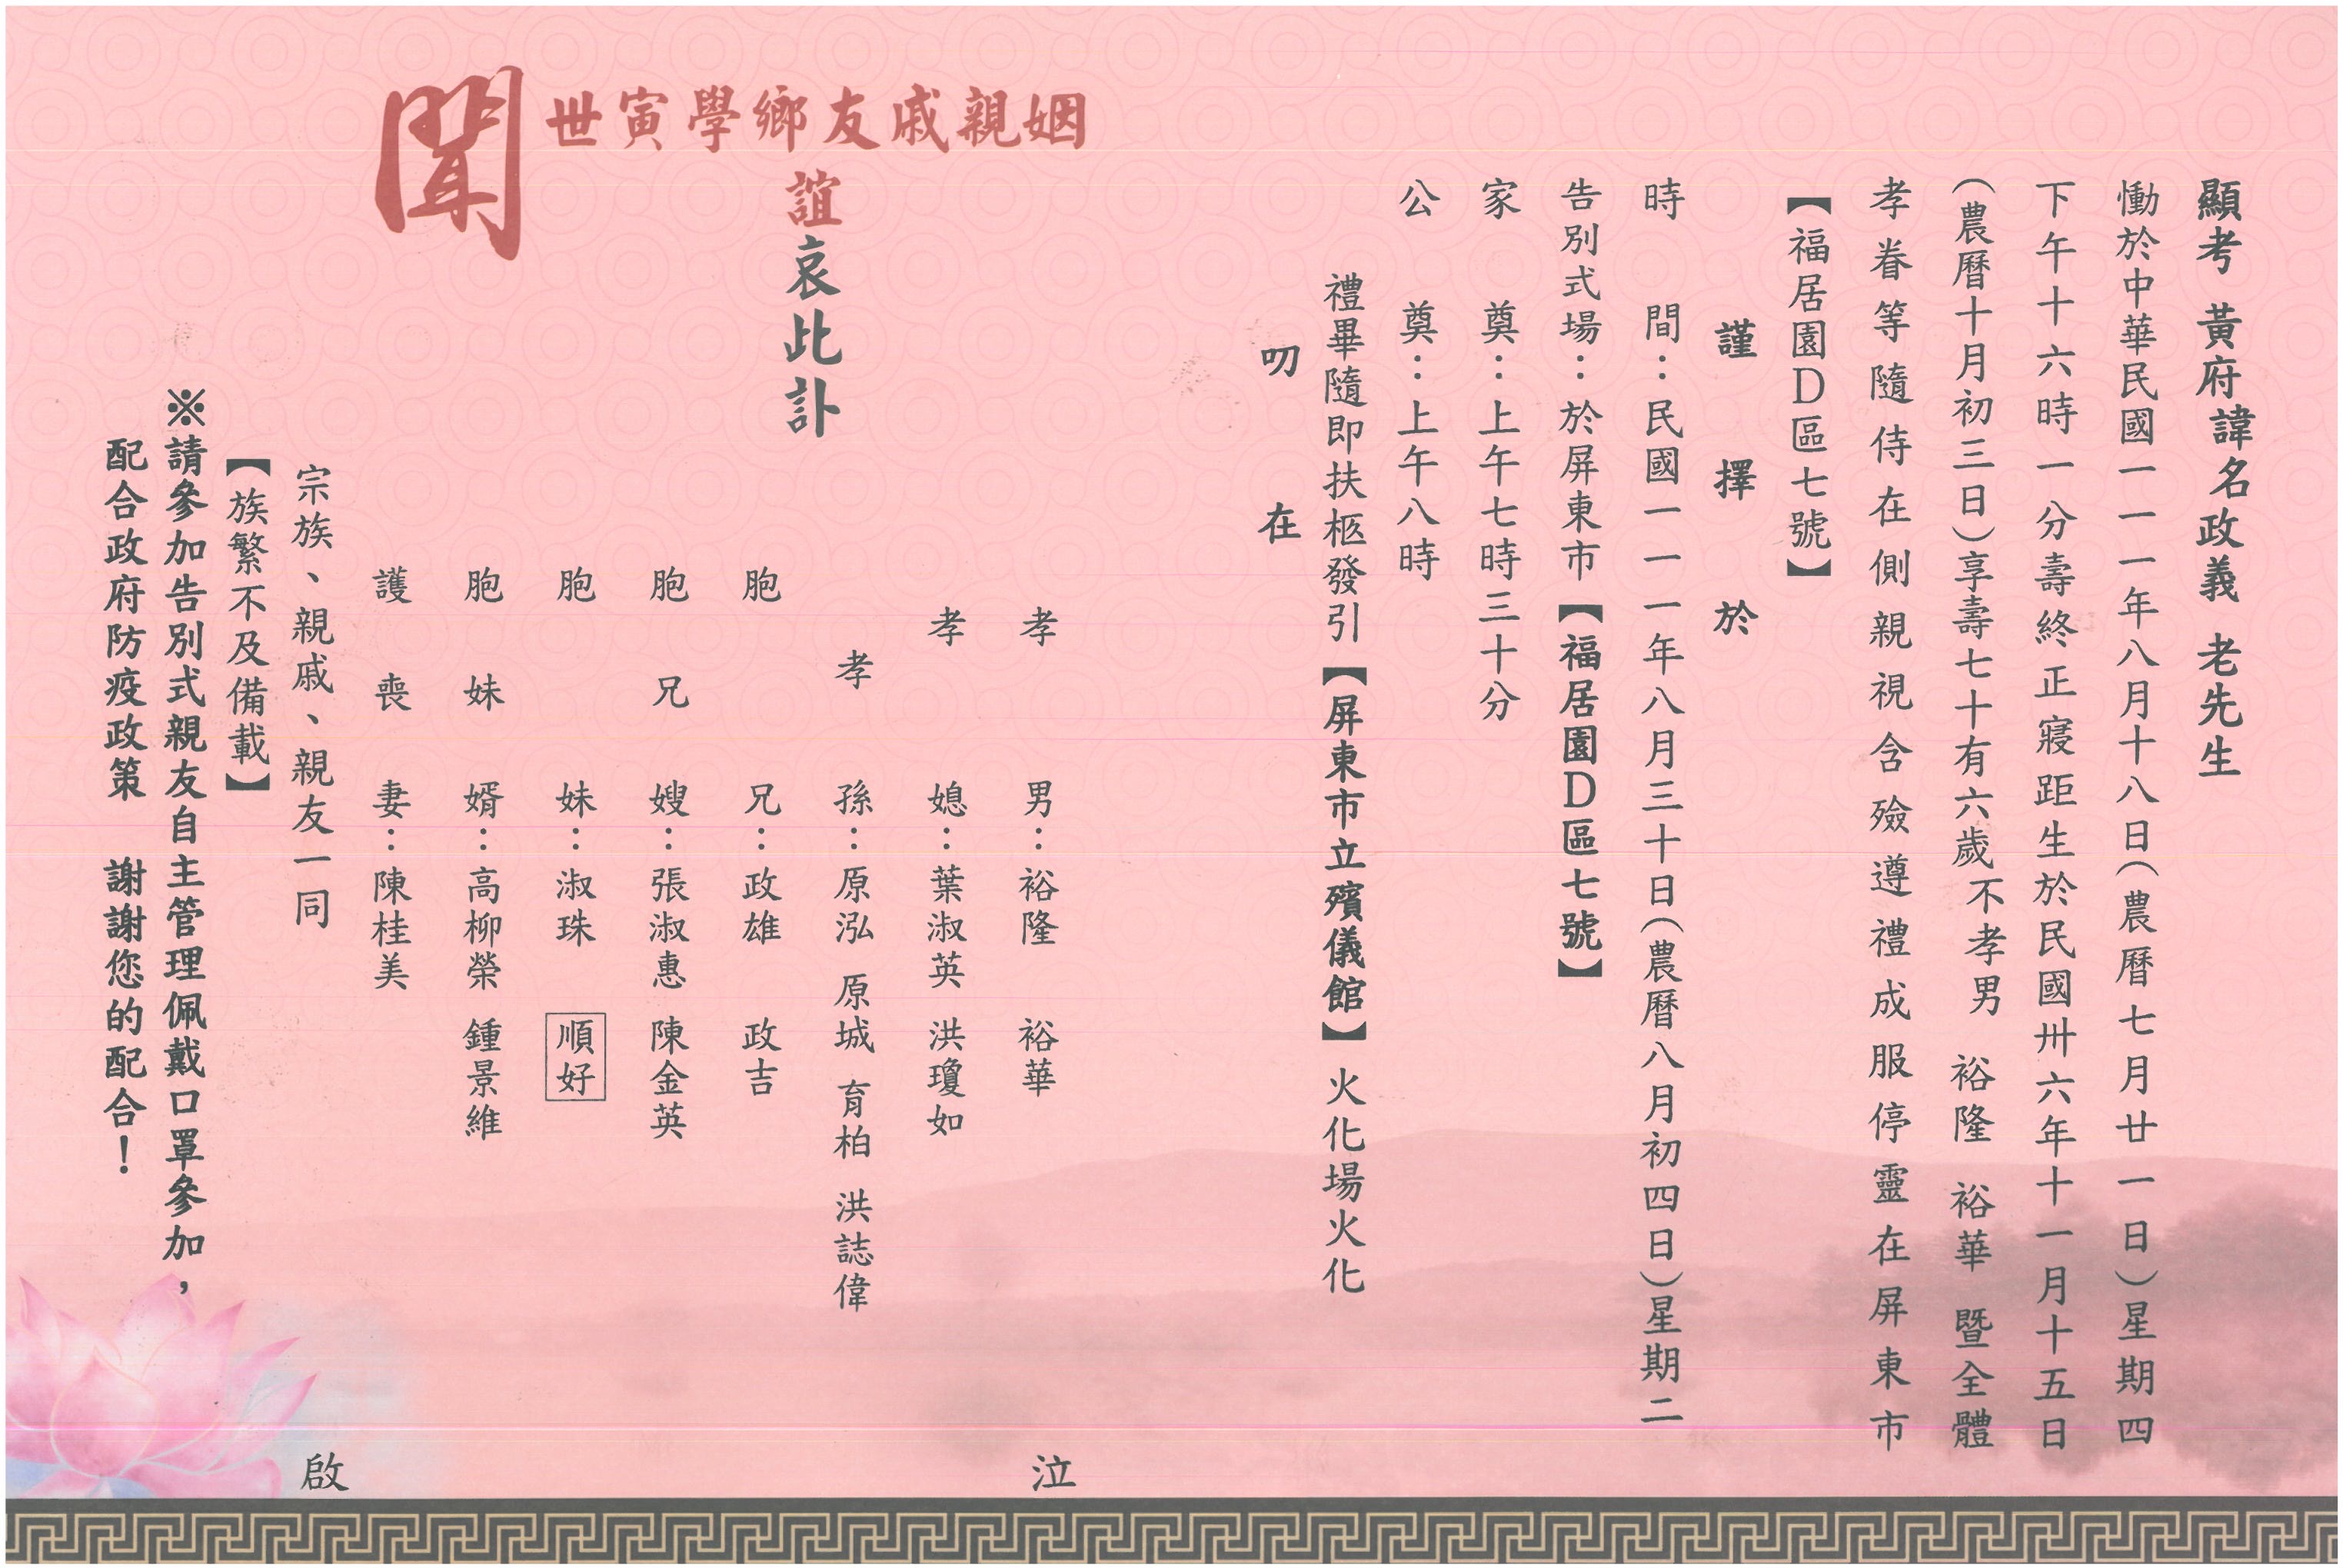 顯考 黃府諱名政義 老先生
慟於中華民國一一一年八月十八日(農曆七月廿一日)星期四
下午十六時一分壽終正寢距生於民國卅六年十一月十五日
(農曆十月初三日)享壽七十有六歲不孝男 裕隆 裕華 暨全體
孝眷等隨侍在側親視含殮遵禮成服停靈在屏東市
【福居園D區七號】
謹擇於
時間：民國一一一年八月三十日(農曆八月初四日)星期二
告別式場：於屏東市【福居園D區七號】
家奠：上午七時三十分
公奠：上午八時
禮畢隨即扶柩發引【屏東市立殯儀館】火化場火化
叨在
姻親戚友鄉學寅世
誼哀此訃
聞
孝男：裕隆 裕華
孝媳：葉淑英 洪瓊如
孝孫：原泓 原城 育柏 洪誌偉
胞兄：政雄 政吉
胞兄嫂：張淑惠 陳金英
胞妹：淑珠 順好
胞妹婿：高柳榮 鍾景維
護喪妻：陳桂美
泣
宗族、親戚、親友一同
啟
【族繁不及備載】
※請參加告別式親友自主管理佩戴口罩參加，
配合政府防疫政策 謝謝您的配合！